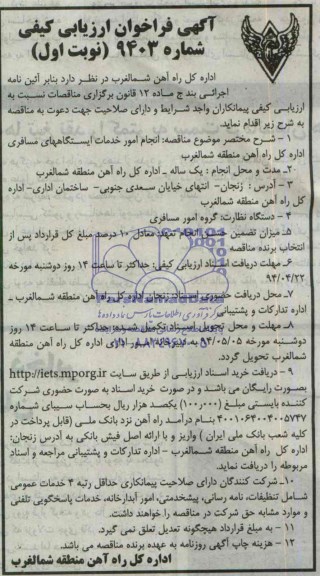 آگهی فراخوان ارزیابی کیفی
شماره ۹۴۰۳ (نوبت اول)
اداره کل راه آهن شمالغرب در نظر دارد بنابر آئین نامه
اجرائی بند ج ماده ۱۲ قانون برگزاری مناقصات نسبت به
ارزیابی کیفی پیمانکاران واجد شرایط و دارای صلاحیت جهت دعوت به مناقصه
به شرح زیر اقدام نماید.
۱ – شرح مختصر موضوع مناقصه: انجام امور خدمات ایستگاههای مسافری
اداره کل راه آهن منطقه شمالغرب
۲– مدت و محل انجام : یک ساله ـ اداره کل راه آهن شمالغرب
۳ – آدرس : زنجان– انتهای خیابان سعدی جنوبی– ساختمان اداری– اداره
کل راه آهن منطقه شمالغرب
۴ – دستگاه نظارت: گروه امور مسافری
۵– میزان تضمین حسن انجام تعهد معادل ۱۰ درصد مبلغ کل قرارداد پس از
انتخاب برنده مناقصه
۶– مهلت دریافت اسناد ارزیابی کیفی: حداکثر تا ساعت ۱۴ روز دوشنبه مورخه
۹۴/۰۴/۲۲
۷– محل دریافت حضوری اسناد: زنجان اداره کل راه آهن منطقه شمالغرب ـ
اداره تدارکات و پشتیبانی
۸– مهلت و محل تحویل اسناد تکمیل شده: حداکثر تا ساعت ۱۴ روز
دوشنبه مورخه ۹۴/۰۵/۰۵ به دبیرخانه امور اداری اداره کل راه آهن منطقه
شمالغرب تحویل گردد.
۹ – دریافت خرید اسناد ارزیابی از طریق سایت http://iets.mporg.ir
بصورت رایگان می باشد و در صورت خرید اسناد به صورت حضوری شرکت
کننده بایستی مبلغ (۱۰۰٫۰۰۰) یکصد هزار ریال بحساب سیبای شماره
۴۰۰۱۰۶۴۰۰۴۰۰۵۷۴۷ بنام درآمد راه آهن نزد بانک ملی (قابل پرداخت در
کلیه شعب بانک ملی ایران ) واریز و با ارائه اصل فیش بانکی به آدرس زنجان:
اداره کل راه آهن منطقه شمالغرب – اداره تدارکات و پشتیبانی مراجعه و اسناد
مربوطه را دریافت نماید.
۱۰– شرکت کنندگان دارای صلاحیت پیمانکاری حداقل رتبه ۴ خدمات عمومی
شامل تنظیفات، نامه رسانی، پیشخدمتی، امور آبدارخانه، خدمات پاسخگویی تلفنی
و موارد مشابه حق شرکت در مناقصه را خواهند داشت.
۱۱ – به مبلغ قرارداد هیچگونه تعدیل تعلق نمی گیرد.
۱۲ – هزینه چاپ آگهی روزنامه به عهده برنده مناقصه می باشد.
اداره کل راه آهن منطقه شمالغرب